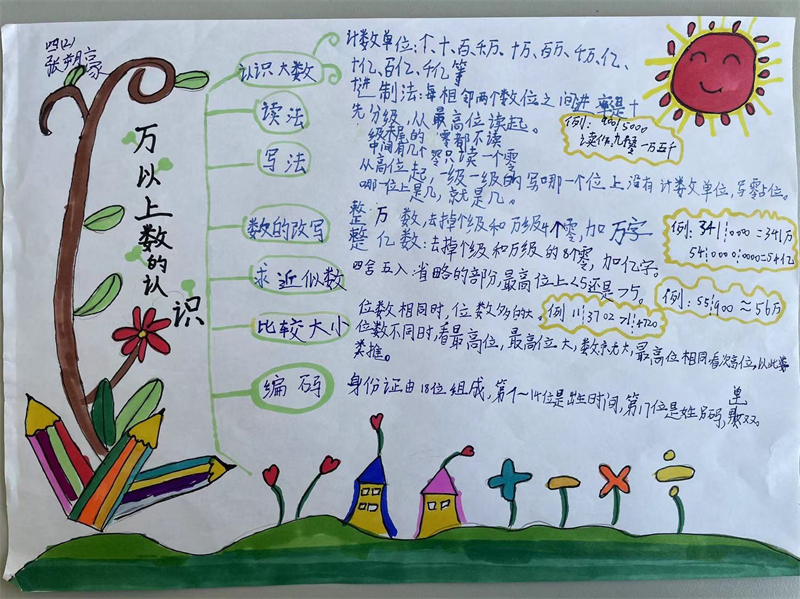 四(2)
张朔豪
万以上数的认识
认识大数
计数单位:个、十、百、千、万、十万、百万、千万、亿、
十亿、百亿、千亿等
十进制法:每相邻两个数位之间进率是十
读法
先分级,从最高位读起。
级末尾的零都不读
中间有几个零只读一个零
例:90015000
读作:九零一万五千
写法
从高位起,一级一级的写哪一个位上没有计数单位,写零占位。
哪一位上是几,就是几。
数的改写
整万数,去掉个级和万级4个零,加万字
整亿数:去掉个级和万级的8个零,加亿字。
例:341|0000=341万
54|0000|0000=54亿
求近似数
四舍五入省略的部份,最高位上<5还是>5。
例:55|900≈56万
比较大小
位数相同时,位数多的大。
位数不同时,看最高位,最高位大,数就大,最高位相同看次高位,以此类推。
编码
身份证由18位组成,第7~14位是出生时间,第17位是姓别码,单
双。